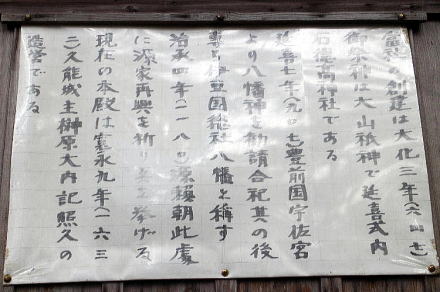 当社の創建は大化三年(六四七)
御祭神は大山祇神で延喜式内
石徳高神社である
延喜七年(九〇七)豊前国宇佐宮
より八幡神を勧請合祀其の後
尊で伊豆国総社八幡と称す
治承四年(一一八〇)源頼朝此處
に源家再興を祈り兵を挙げる
現在の本殿は寛永九年(一六三
二)久能城主榊原大内記照久の
造営である